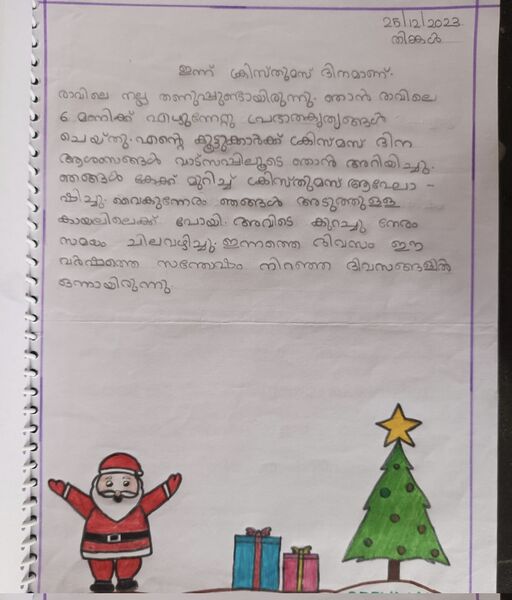 25/12/2023
തിങ്കൾ
ഇന്ന് ക്രിസ്തുമസ് ദിനമാണ്.
രാവിലെ നല്ല തണുപ്പുണ്ടായിരുന്നു. ഞാൻ രാവിലെ
6 മണിക്ക് എഴുന്നേറ്റു പ്രഭാതകൃത്യങ്ങൾ
ചെയ്തു. എന്റെ കൂട്ടുകാർക്ക് ക്രിസ്മസ് ദിന
ആശംസങ്ങൾ വാട്സാപ്പിലൂടെ ഞാൻ അറിയിച്ചു.
ഞങ്ങൾ കേക്ക് മുറിച്ച് ക്രിസ്തുമസ് ആഘോ -
ഷിച്ചു. വൈകുന്നേരം ഞങ്ങൾ അടുത്തുള്ള
കായലിലെക്ക് പോയി. അവിടെ കുറച്ചു നേരം
സമയം ചിലവഴിച്ചു. ഇന്നത്തെ ദിവസം ഈ
വർഷത്തെ സന്തോഷം നിറഞ്ഞ ദിവസങ്ങളിൽ
ഒന്നായിരുന്നു.